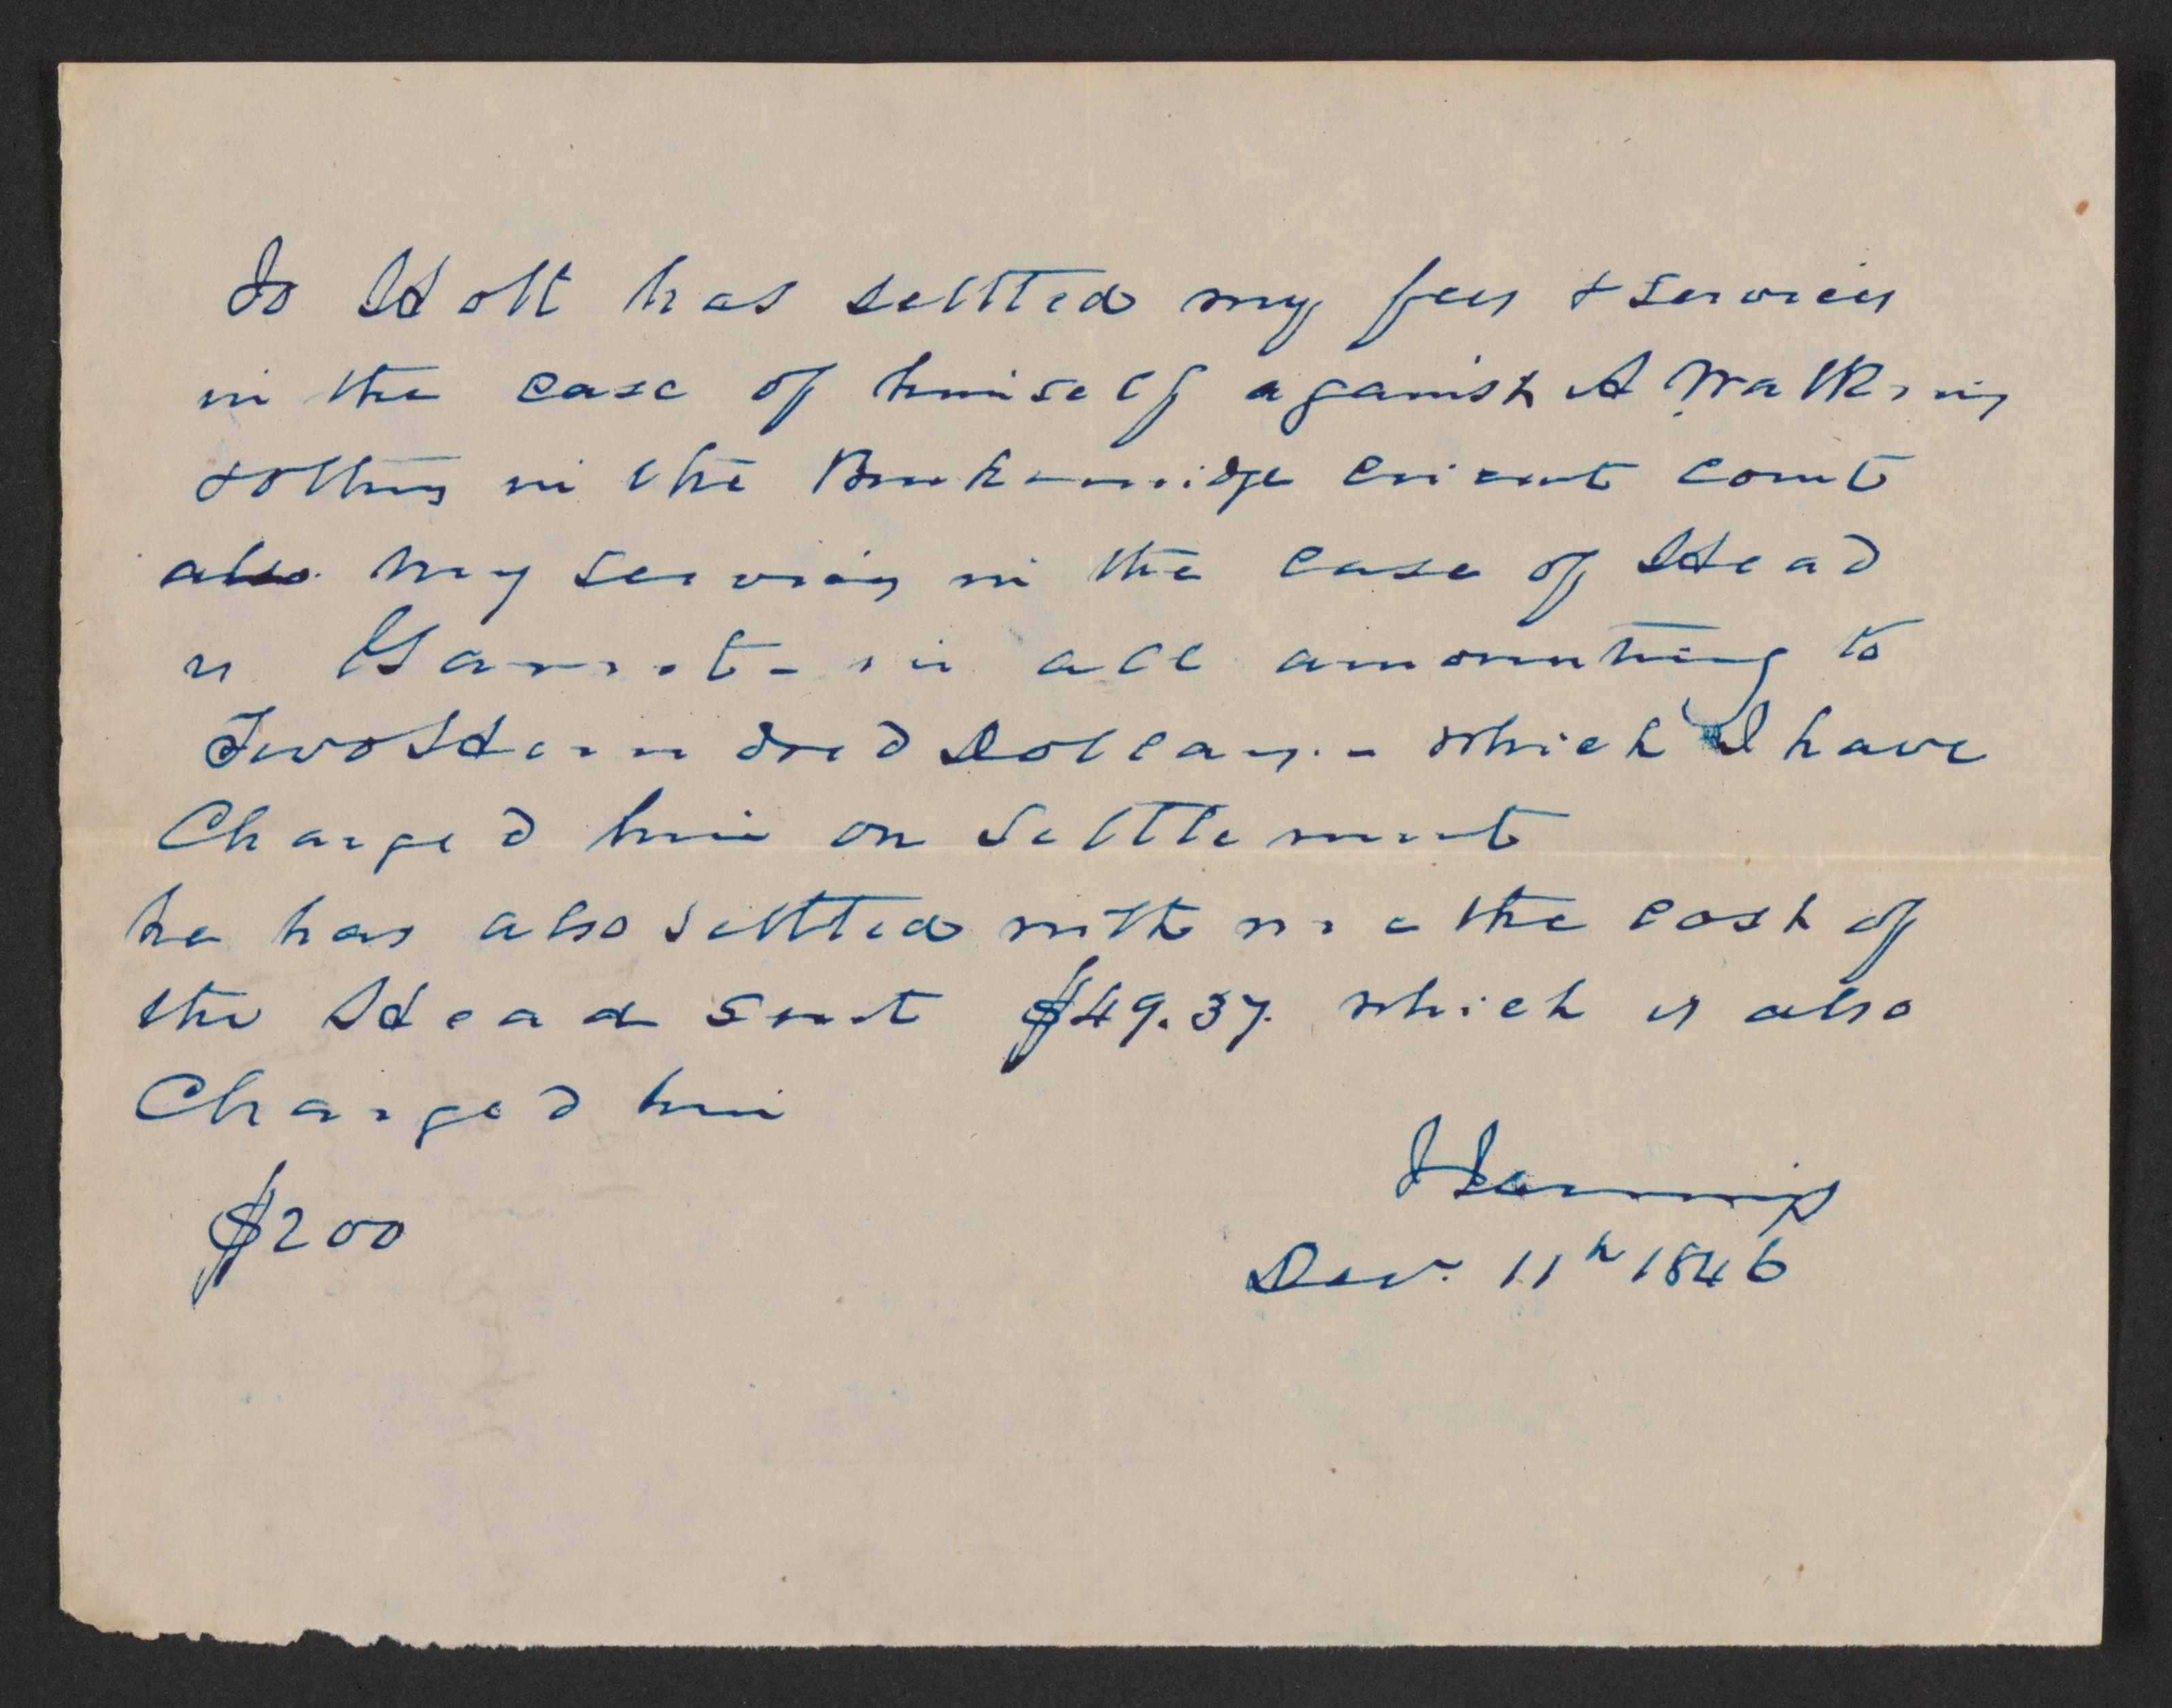 Jo Holt has settled my fees & services
in the case of himself against A Watkins
& others in the Breckenridge circuit court
also my services in the case of Head
vs Garret - in all amounting to
Two Hundred Dollars. - which I have
Charged him on Settlement
he has also settled with me the cost of
the Head Suit $49.37. which is also
Charged him
$200
Dec. 11h 1846